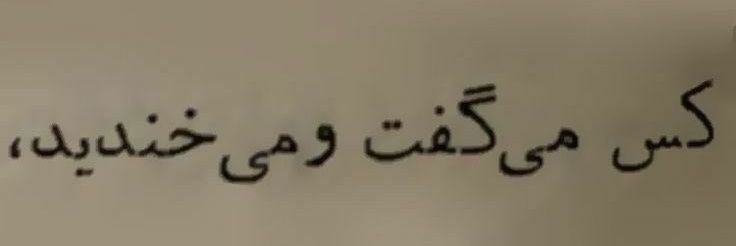 کس می‌گفت و می‌خندید،